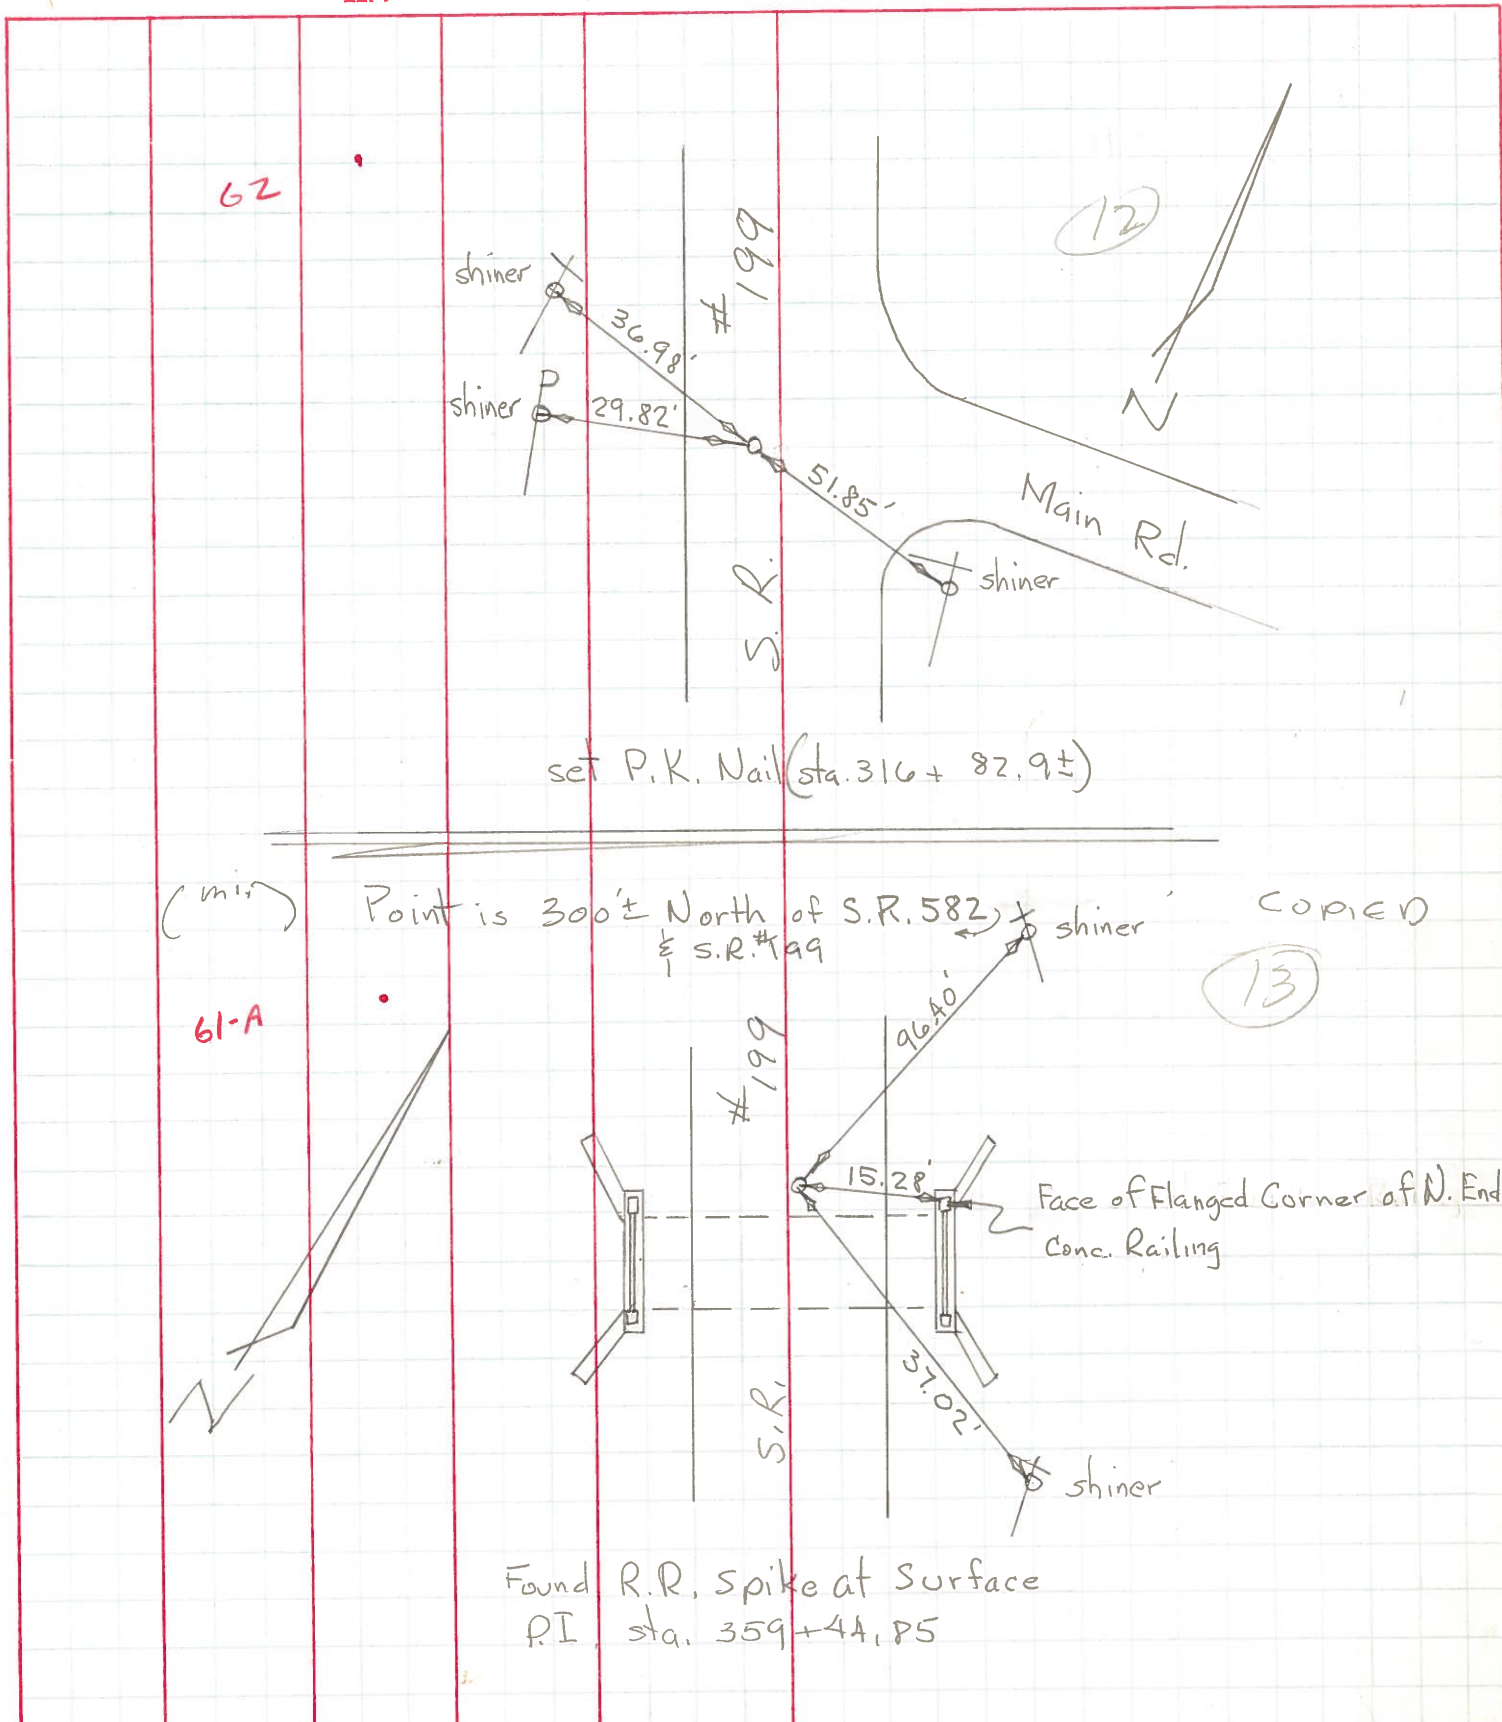 62
12
# 199
shiner
36.98'
P
shiner
29.82'
51.85'
Main Rd.
N
shiner
S. R.
set P.K. Nail (sta. 316 + 82.9±)
Point is 300'± North of S.R. 582
& S.R. #199
shiner
COPIED
13
61-A
# 199
96.40'
15.28'
Face of Flanged Corner of N. End
Conc. Railing
N
37.02'
S.R.
shiner
Found R.R. Spike at Surface
P.I. sta. 359+44.85